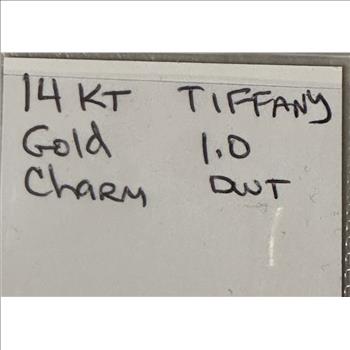 14 KT TIFFANY
Gold 1.0
Charm DWT